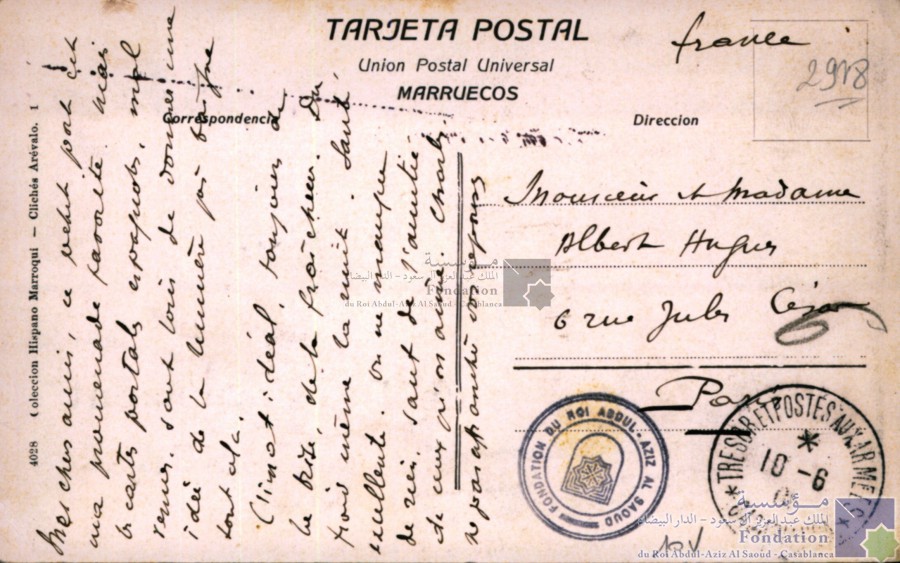 TARJETA POSTAL
Union Postal Universal
MARRUECOS
Correspondencia
Direccion
france
2918
Monsieur et Madame
Albert Hugues
6 rue Jules César
Paris
6
4028 Coleccion Hispano Marroqui – Clichés Arévalo. 1
Mes chers amis, ce petit port est
ma promenade favorite. mais
les cartes postales espagnoles, mal
venues, sont loin de donner une
idée de la lumière
sont là.
Climat idéal, toujours de
la brise, de la fraîcheur. Du
froid même la nuit. Santé
excellente. on ne manque
de rien, sauf de
de ceux qu'on aime. Charles
FONDATION DU ROI ABDUL-AZIZ AL SAOUD
* TRESOR ET POSTES AUX ARMEES *
10-6
مؤسسة
الملك عبد العزيز آل سعود - الدار البيضاء
Fondation
du Roi Abdul-Aziz Al Saoud - Casablanca
مؤسسة
الملك عبد العزيز آل سعود - الدار البيضاء
Fondation
du Roi Abdul-Aziz Al Saoud - Casablanca